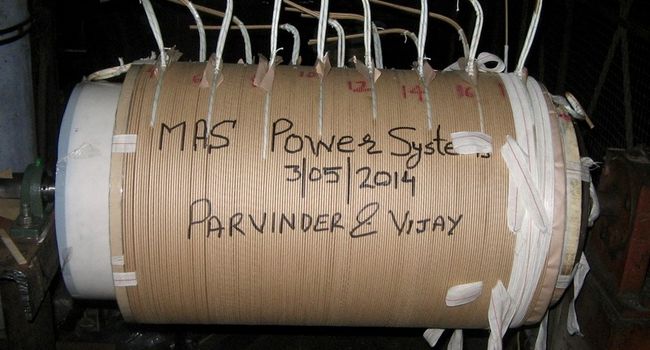 10 12 14 16
MAS Power Systems
3/05/2014
PARVINDER & VIJAY